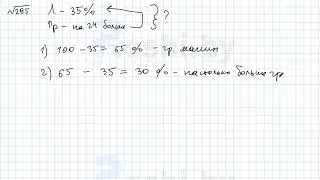 √295 Л - 35%
Гр - на 24 больше } ?
1) 100 - 35 = 65 % - гр. машин
2) 65 - 35 = 30 % - настолько больше гр